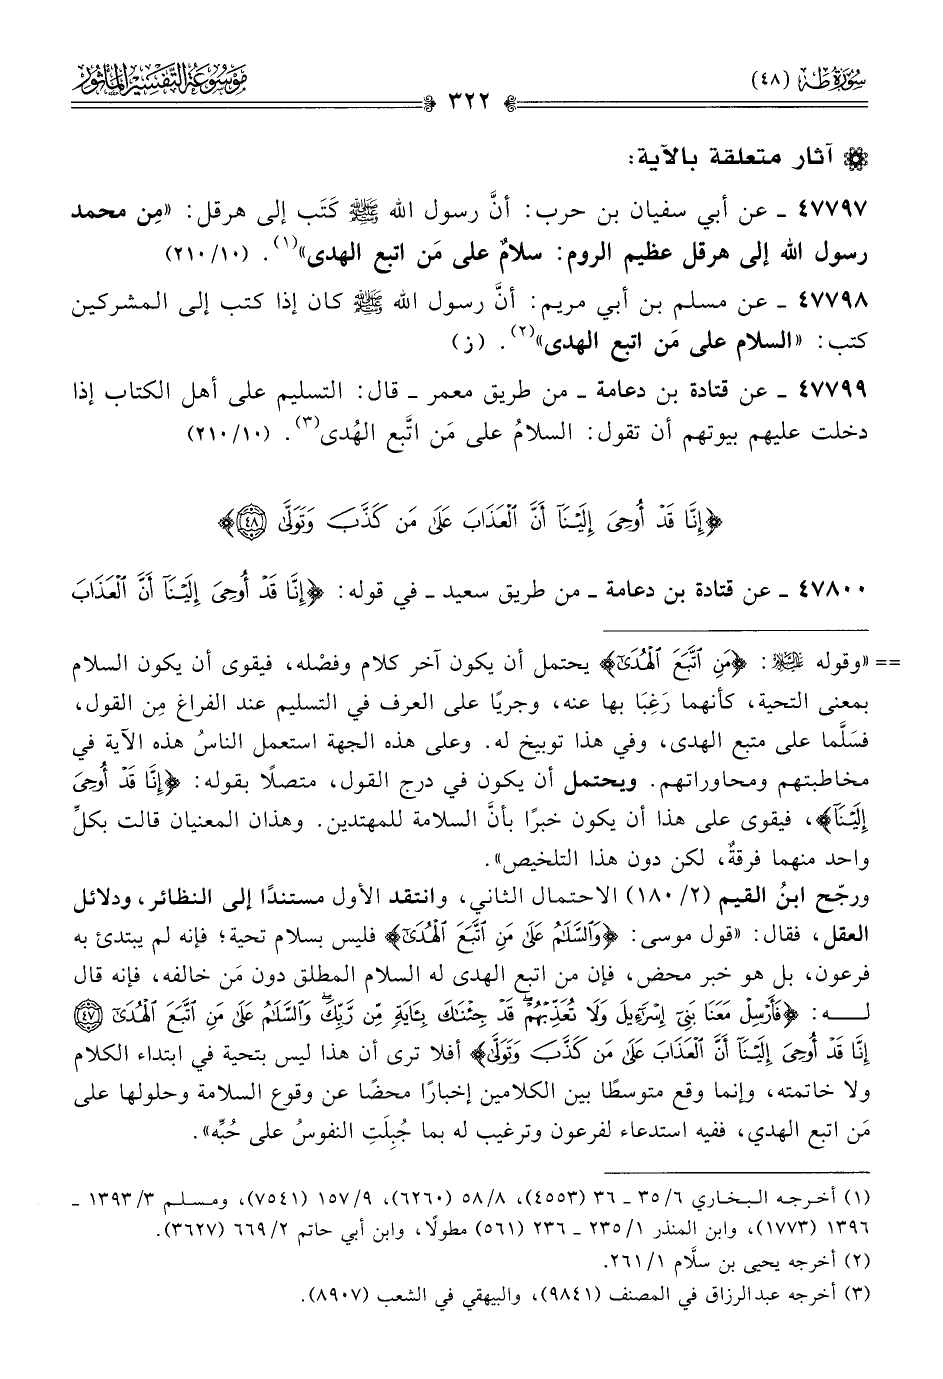 سُورَةُ طه (٤٨)
٣٢٢
مَوْسُوعَةُ التَّفْسِيرِ المَأْثُور
آثار متعلقة بالآية:
٤٧٧٩٧ ـ عن أبي سفيان بن حرب: أنَّ رسول الله ﷺ كَتَب إلى هرقل: «مِن محمد
رسول الله إلى هرقل عظيم الروم: سلامٌ على مَن اتبع الهدى»(١). (٢١٠/١٠)
٤٧٧٩٨ ـ عن مسلم بن أبي مريم: أنَّ رسول الله ﷺ كان إذا كتب إلى المشركين
كتب: «السلام على مَن اتبع الهدى»(٢). (ز)
٤٧٧٩٩ ـ عن قتادة بن دعامة ـ من طريق معمر ـ قال: التسليم على أهل الكتاب إذا
دخلت عليهم بيوتهم أن تقول: السلامُ على مَن اتَّبع الهُدى(٣). (٢١٠/١٠)
﴿إِنَّا قَدْ أُوحِىَ إِلَيْنَآ أَنَّ ٱلْعَذَابَ عَلَىٰ مَن كَذَّبَ وَتَوَلَّىٰ ٤٨﴾
٤٧٨٠٠ ـ عن قتادة بن دعامة ـ من طريق سعيد ـ في قوله: ﴿إِنَّا قَدْ أُوحِىَ إِلَيْنَآ أَنَّ ٱلْعَذَابَ
== «وقوله ﵇: ﴿مَنِ ٱتَّبَعَ ٱلْهُدَىٰٓ﴾ يحتمل أن يكون آخر كلام وفصْله، فيقوى أن يكون السلام
بمعنى التحية، كأنهما رَغِبَا بها عنه، وجريًا على العرف في التسليم عند الفراغ مِن القول،
فسَلَّما على متبع الهدى، وفي هذا توبيخ له. وعلى هذه الجهة استعمل الناسُ هذه الآية في
مخاطبتهم ومحاوراتهم. ويحتمل أن يكون في درج القول، متصلًا بقوله: ﴿إِنَّا قَدْ أُوحِىَ
إِلَيْنَآ﴾، فيقوى على هذا أن يكون خبرًا بأنَّ السلامة للمهتدين. وهذان المعنيان قالت بكلِّ
واحد منهما فرقةٌ، لكن دون هذا التلخيص».
ورجّح ابنُ القيم (٢/ ١٨٠) الاحتمال الثاني، وانتقد الأول مستندًا إلى النظائر، ودلائل
العقل، فقال: «قول موسى: ﴿وَٱلسَّلَٰمُ عَلَىٰ مَنِ ٱتَّبَعَ ٱلْهُدَىٰٓ﴾ فليس بسلام تحية؛ فإنه لم يبتدئ به
فرعون، بل هو خبر محض، فإن من اتبع الهدى له السلام المطلق دون مَن خالفه، فإنه قال
لـــه: ﴿فَأَرْسِلْ مَعَنَا بَنِىٓ إِسْرَٰٓءِيلَ وَلَا تُعَذِّبْهُمْ ۖ قَدْ جِئْنَٰكَ بِـَٔايَةٍ مِّن رَّبِّكَ ۖ وَٱلسَّلَٰمُ عَلَىٰ مَنِ ٱتَّبَعَ ٱلْهُدَىٰٓ ٤٧
إِنَّا قَدْ أُوحِىَ إِلَيْنَآ أَنَّ ٱلْعَذَابَ عَلَىٰ مَن كَذَّبَ وَتَوَلَّىٰ﴾ أفلا ترى أن هذا ليس بتحية في ابتداء الكلام
ولا خاتمته، وإنما وقع متوسطًا بين الكلامين إخبارًا محضًا عن وقوع السلامة وحلولها على
مَن اتبع الهدي، ففيه استدعاء لفرعون وترغيب له بما جُبِلَتِ النفوسُ على حُبِّه».
(١) أخرجه البخاري ٦/ ٣٥ ـ ٣٦ (٤٥٥٣)، ٨/ ٥٨ (٦٢٦٠)، ٩/ ١٥٧ (٧٥٤١)، ومسلم ٣/ ١٣٩٣ ـ
١٣٩٦ (١٧٧٣)، وابن المنذر ١/ ٢٣٥ ـ ٢٣٦ (٥٦١) مطولًا، وابن أبي حاتم ٢/ ٦٦٩ (٣٦٢٧).
(٢) أخرجه يحيى بن سلَّام ١/ ٢٦١.
(٣) أخرجه عبدالرزاق في المصنف (٩٨٤١)، والبيهقي في الشعب (٨٩٠٧).